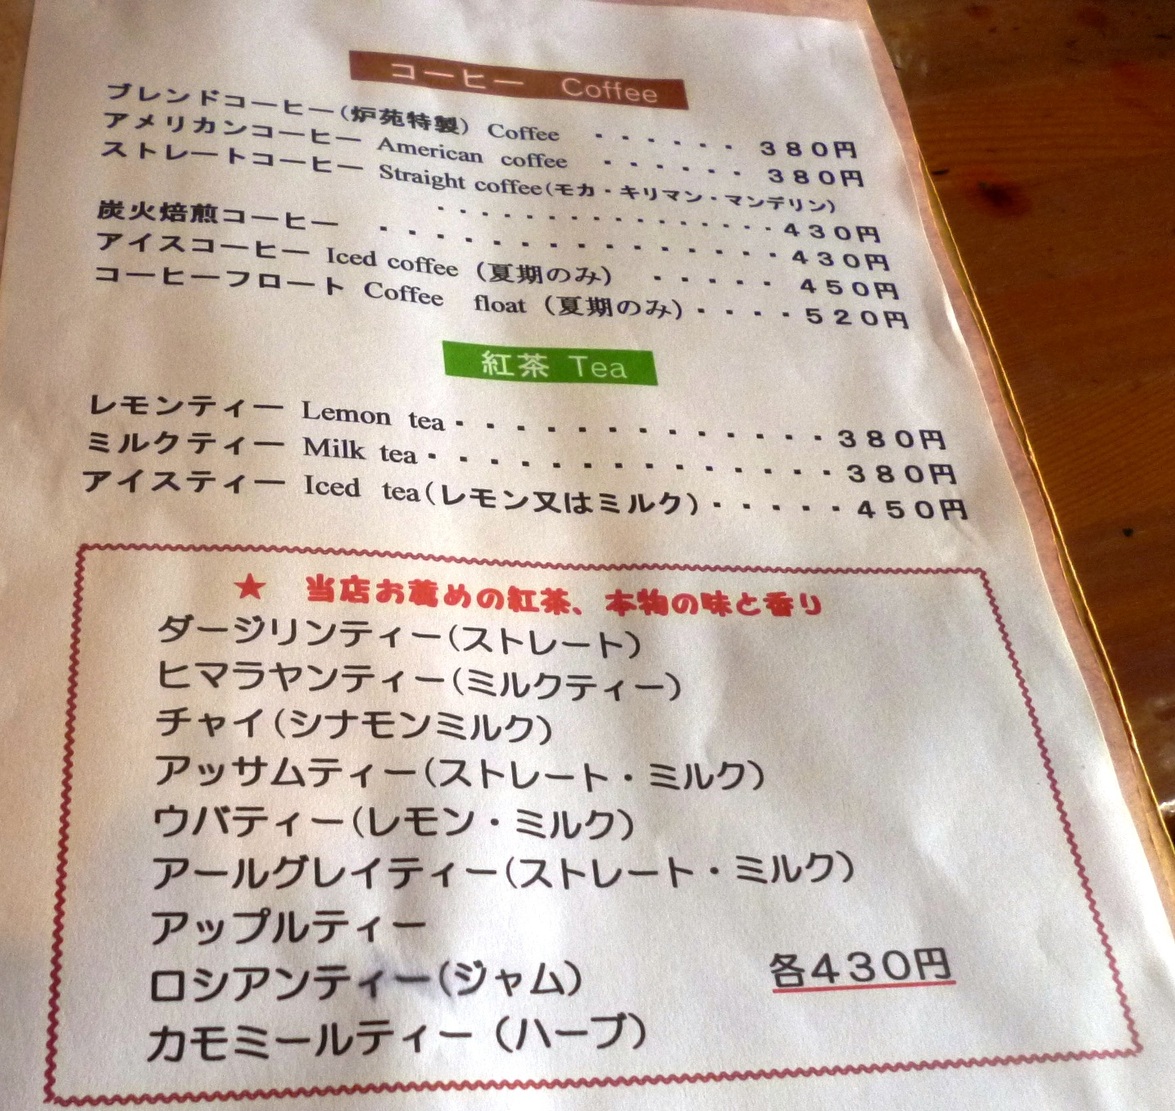 コーヒー Coffee
ブレンドコーヒー(炉苑特製) Coffee ・・・・・・ 380円
アメリカンコーヒー American coffee ・・・・・・ 380円
ストレートコーヒー Straight coffee(モカ・キリマン・マンデリン)
・・・・・・・・・・・・・・430円
炭火焙煎コーヒー ・・・・・・・・・・・・・・430円
アイスコーヒー Iced coffee (夏期のみ) ・・・・・ 450円
コーヒーフロート Coffee float (夏期のみ)・・・・520円
紅茶 Tea
レモンティー Lemon tea・・・・・・・・・・・・・・380円
ミルクティー Milk tea・・・・・・・・・・・・・・・380円
アイスティー Iced tea(レモン又はミルク)・・・・・450円
★ 当店お薦めの紅茶、本物の味と香り
ダージリンティー(ストレート)
ヒマラヤンティー(ミルクティー)
チャイ(シナモンミルク)
アッサムティー(ストレート・ミルク)
ウバティー(レモン・ミルク)
アールグレイティー(ストレート・ミルク)
アップルティー
ロシアンティー(ジャム) 各430円
カモミールティー (ハーブ)